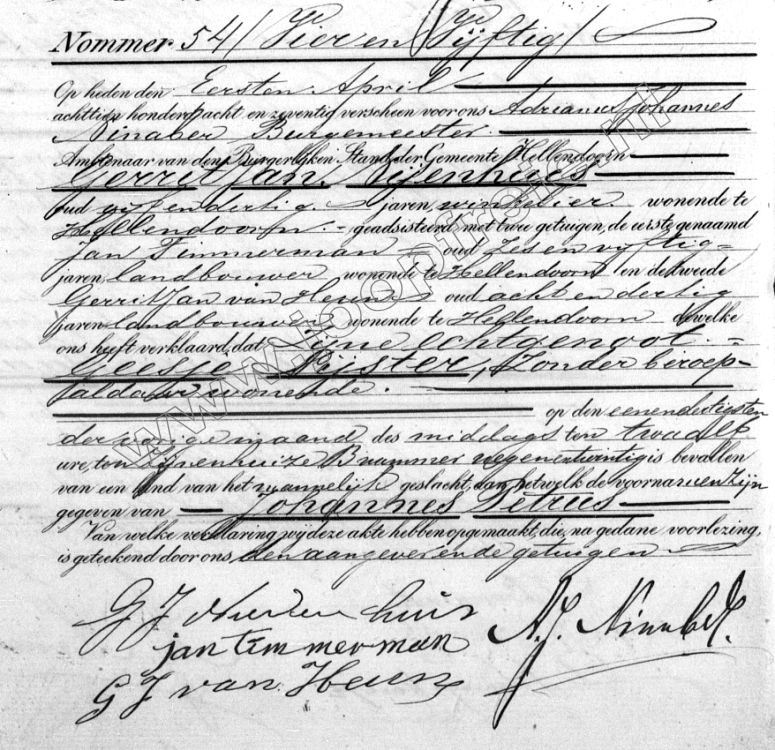 Nommer 54/ Vier en Vijftig/
Op heden den Eersten April
achttien honderd acht en zeventig verscheen voor ons Adrianus Johannes
Ninaber Burgemeester
Ambtenaar van den Burgerlijken Stand der Gemeente Hellendoorn
Gerrit Jan
oud vijf en dertig jaren, winkelier wonende te
Hellendoorn geadsisteerd met twee getuigen, de eerste genaamd
Jan Timmerman oud zes en vijftig
jaren, landbouwer wonende te Hellendoorn en de tweede
Gerrit Jan van oud acht en dertig
jaren landbouwer wonende te Hellendoorn dewelke
ons heeft verklaard, dat zijne echtgenoot
Geesje Pijster, zonder beroep
aldaar wonende
op den eenendertigsten
der vorige maand des middags ten twaalf
ure, ten zijnenhuize Nummer negenentwintig is bevallen
van een kind van het mannelijk geslacht, aan hetwelk de voornamen zijn
gegeven van Johannes Petrus
Van welke verklaring wij deze akte hebben opgemaakt, die, na gedane voorlezing,
is geteekend door ons, den aangever en de getuigen
G J
jan timmerman A.J. Ninaber.
G J van